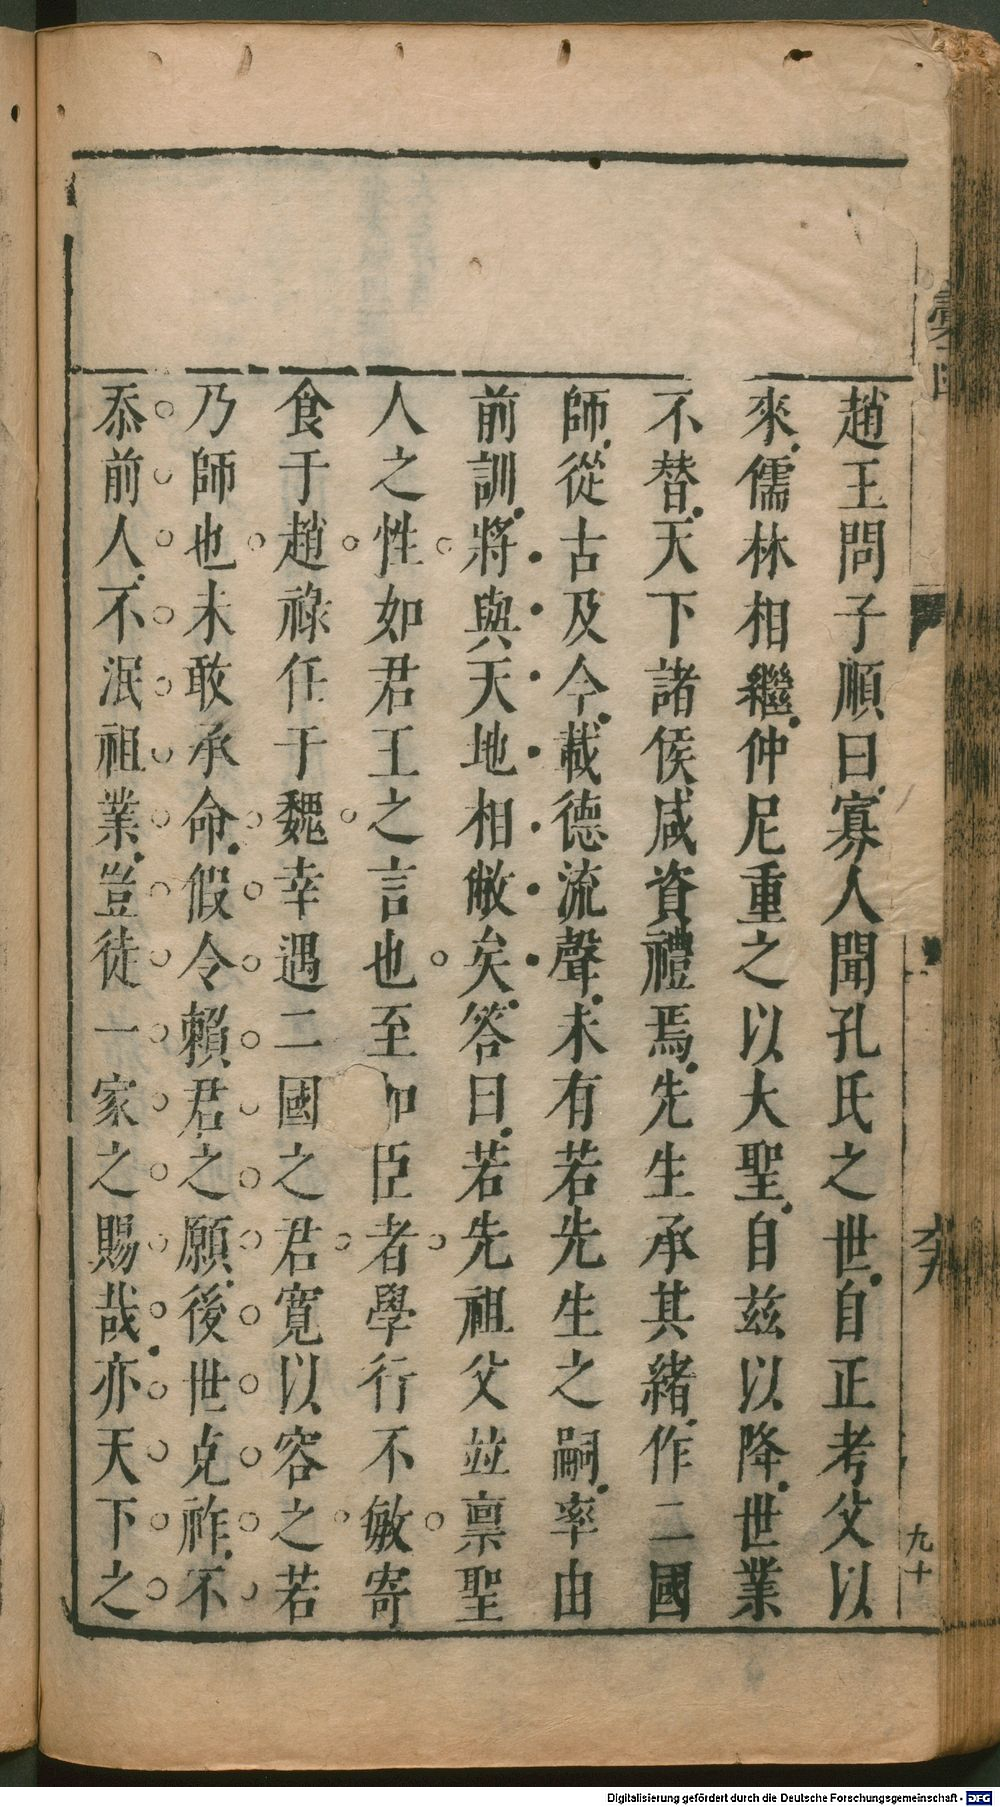 趙王問子順曰寡人聞孔氏之世自正考父以
來儒林相繼仲尼重之以大聖自茲以降世業
不替天下諸侯咸資禮焉先生承其緒作二國
師從古及今載德流聲未有若先生之嗣率由
前訓將與天地相敝矣答曰若先祖父並稟聖
人之性如君王之言也至如臣者學行不敏寄
食于趙祿任于魏幸遇二國之君寬以容之若
乃師也未敢承命假令賴君之願後世克祚不
忝前人不泯祖業豈徒一家之賜哉亦天下之
九十
Digitalisierung gefördert durch die Deutsche Forschungsgemeinschaft - DFG